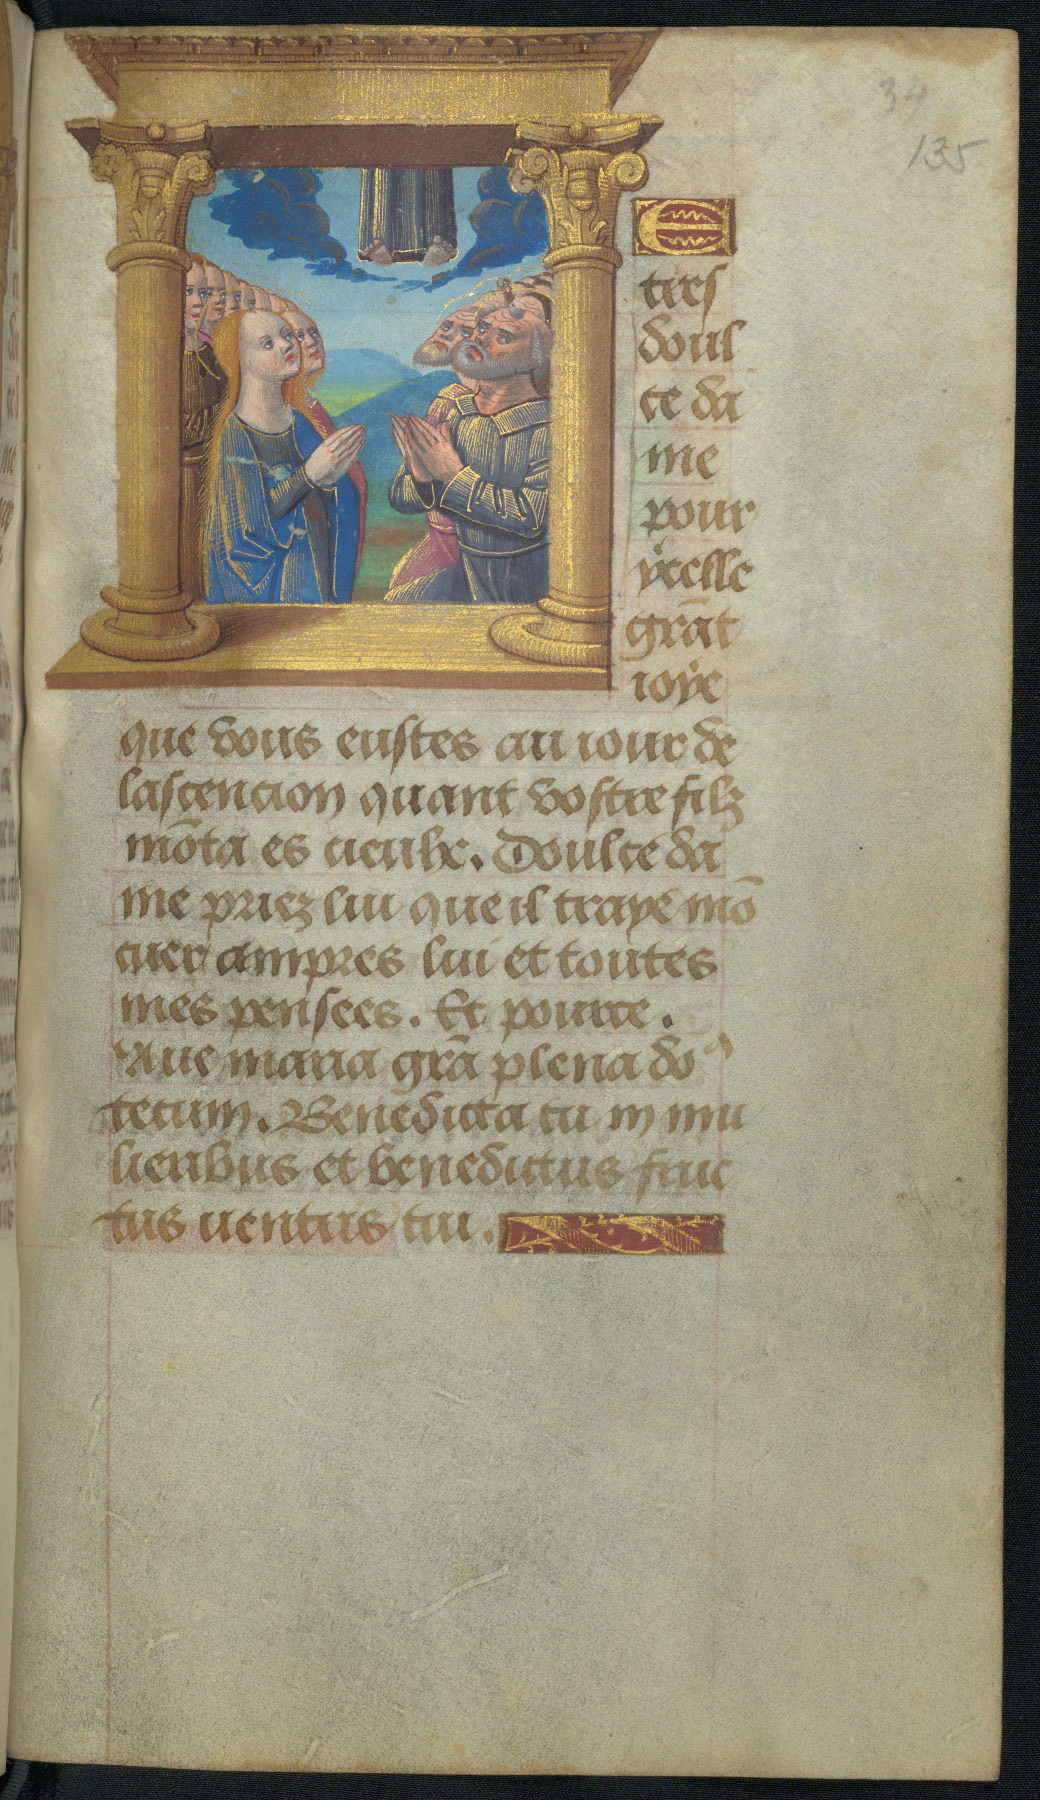 34
135
E
ters
doul
ce da
me
pour
ycelle
grãt
ioye
que vous eustes au iour de
lascencion quant vostre filz
mõta es cieulx. Doulce da
me priez lui que il traye mõ
cuer ampres lui et toutes
mes pensees. Et pource.
Aue maria grã plena dõ
tecum. Benedicta tu in mu
lieribus et benedictus fruc
tus uentris tui.